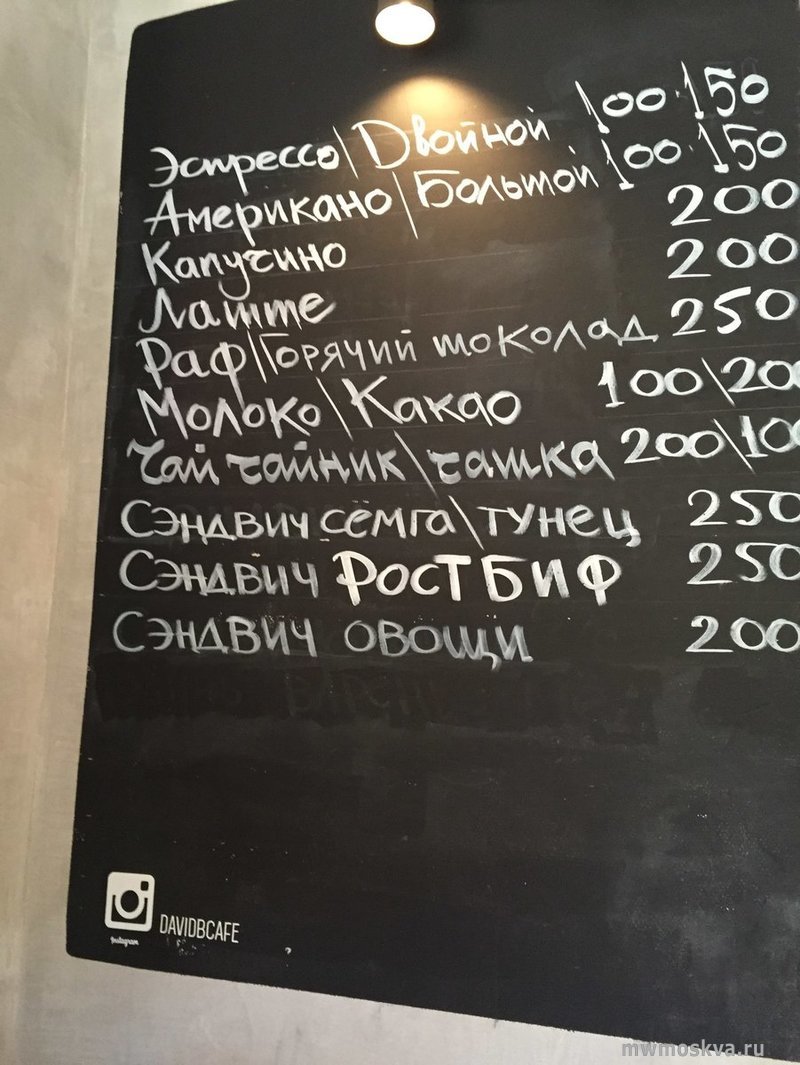 Эспрессо\Двойной 100 150
Американо\Большой 100 150
Капучино 200
Латте 200
Раф\Горячий шоколад 250
Молоко\Какао 100\200
Чай чайник\чашка 200\100
Сэндвич сёмга\тунец 250
Сэндвич Ростбиф 250
Сэндвич овощи 200
Instagram
DAVIDBCAFE
mwmoskva.ru